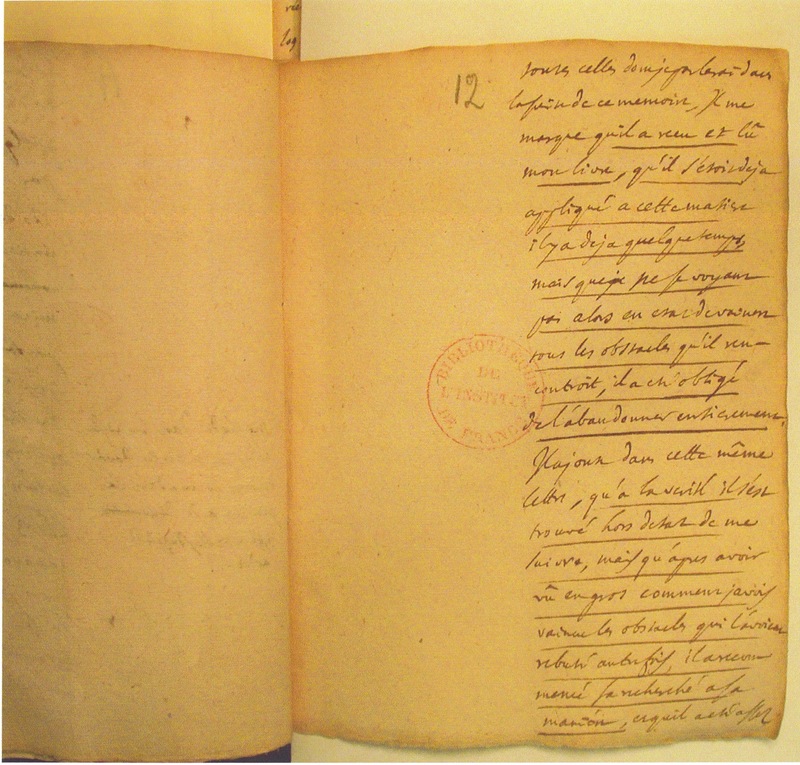 12
toutes celles dont je parlerai dans
la suin de ce memoire, Il me
marque qu'il a receu et lû
mon livre, qu'il s'étoit deja
appliqué a cette matiere
il y a deja quelque temps,
mais que ne se voyant
pas alors en etat de vaincre
tous les obstacles qu'il ren-
controit, il a eté obligé
de l'abandonner entierement.
Il ajoute dans cette même
lettre, qu'a la verité il s'est
trouvé hors d'etat de me
suivre, mais qu'apres avoir
vû en gros comment j'avois
vaincu les obstacles qui l'avoient
rebuté autrefois, il a recom
mencé sa recherche a sa
maniere, et qu'il a eté assez
BIBLIOTHEQUE
DE
L'INSTITUT
DE FRANCE